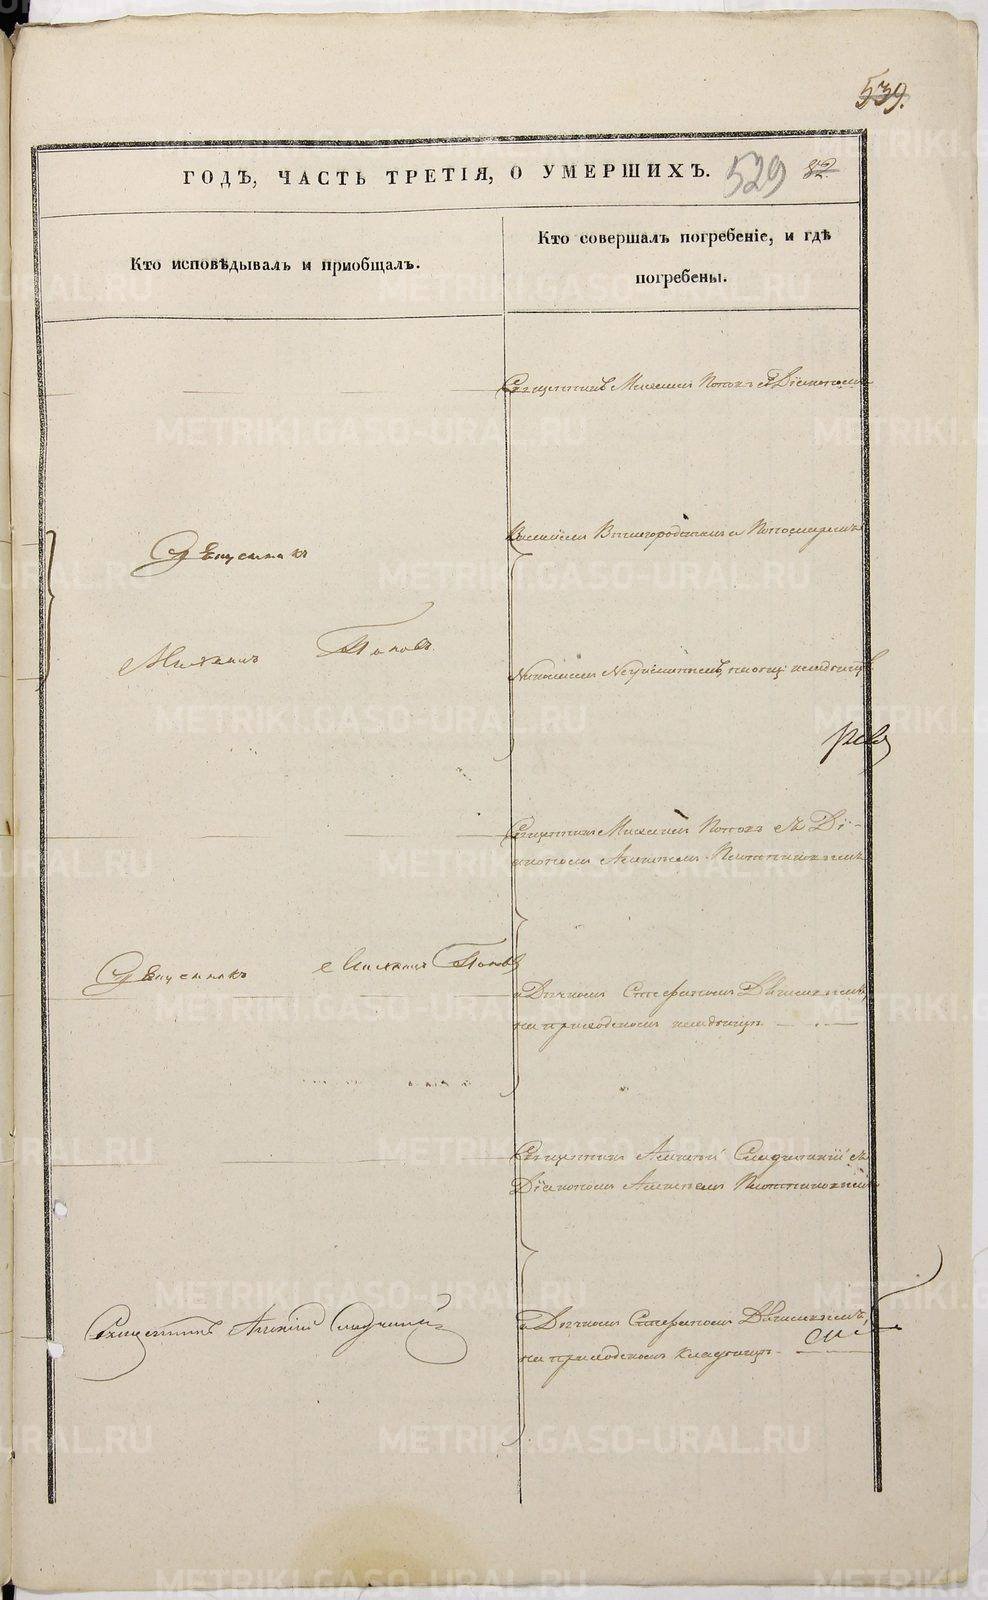 539.
ГОДЪ, ЧАСТЬ ТРЕТІЯ, О УМЕРШИХЪ. 529 82
Кто исповѣдывалъ и пріобщалъ.
Кто совершалъ погребеніе, и гдѣ
погребены.
Священникъ Михаилъ Поповъ съ Діакономъ
Священникъ
Василіемъ и Пономаремъ
Михаилъ Поповъ
Николаемъ
Священникъ Михаилъ Поповъ съ Ді-
акономъ Алексѣемъ Плотниковымъ
Священникъ Михаилъ Поповъ
и Дьячкомъ Стефаномъ
на приходскомъ кладбищѣ
Священникъ Алексѣй съ
Діакономъ Алексѣемъ Плотниковымъ
Священникъ Алексѣй
и Дьячкомъ Стефаномъ
на приходскомъ кладбищѣ
METRIKI.GASO-URAL.RU